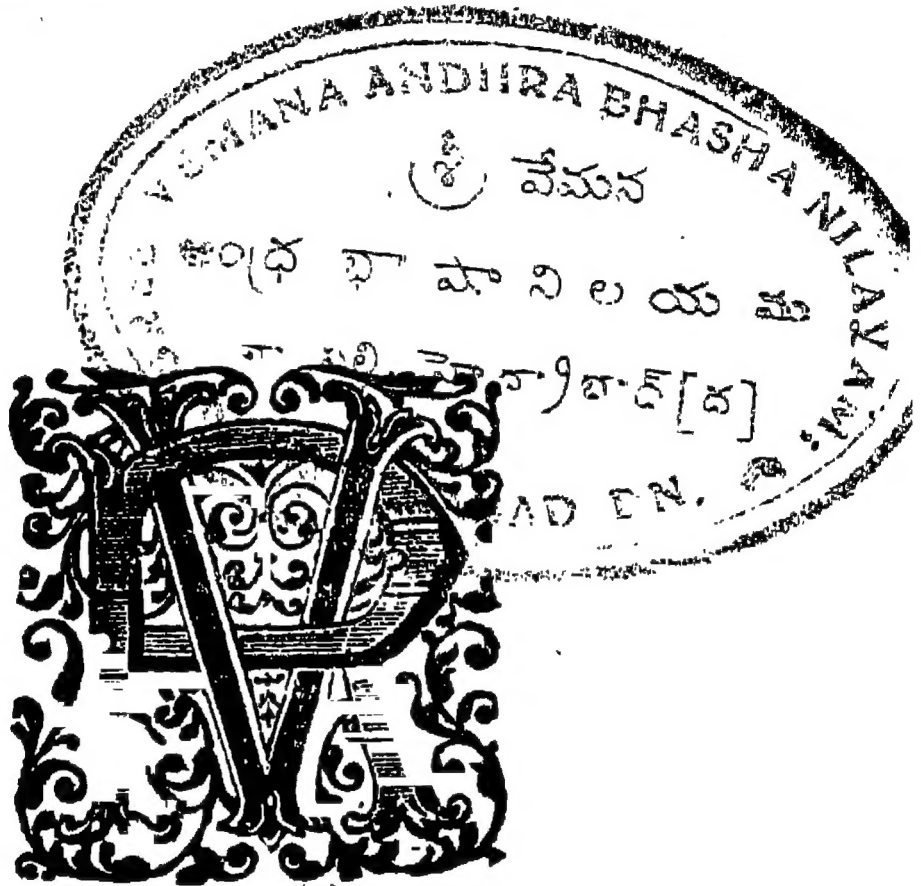 VEMANA ANDHRA BHASHA NILAYAM:
శ్రీ వేమన
ఆంధ్ర భాషా నిలయము
హైదరాబాద్ [ద]
AD DN.
VP